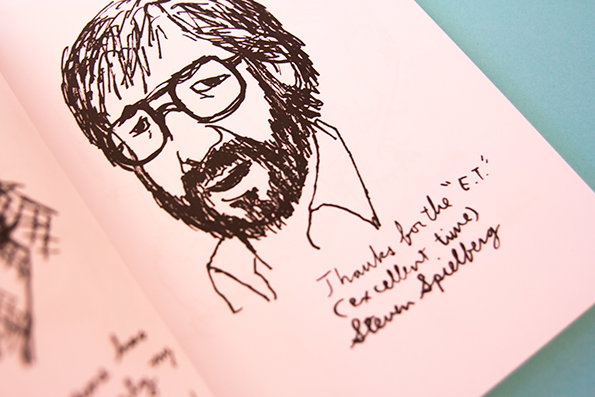 Thanks for the "E.T."
(excellent time)
Steven Spielberg